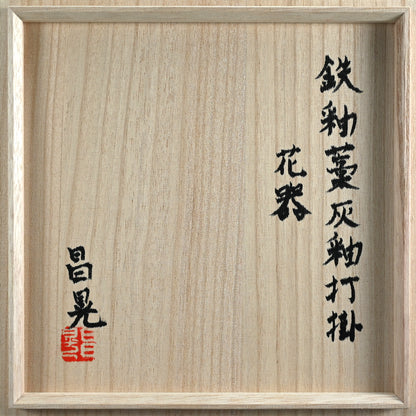 鉄釉藁灰釉打掛
花器
昌晃